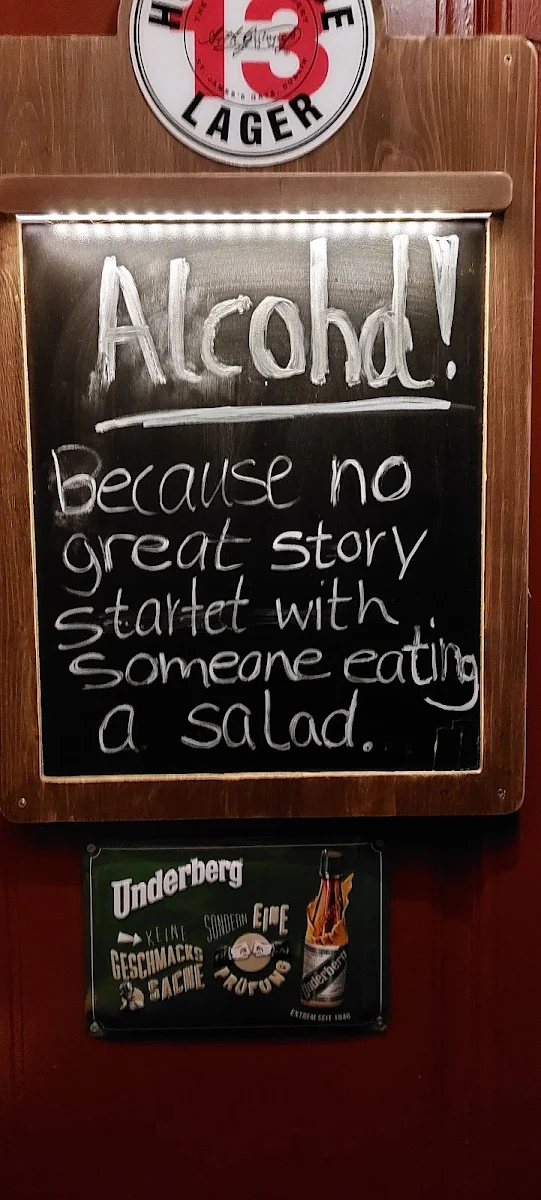 13
LAGER
Alcohol!
Because no
great story
startet with
someone eating
a salad.
Underberg
KEINE
GESCHMACKS
SACHE
SONDERN EINE
PRÜFUNG
Underberg
EXTREM SEIT 1846